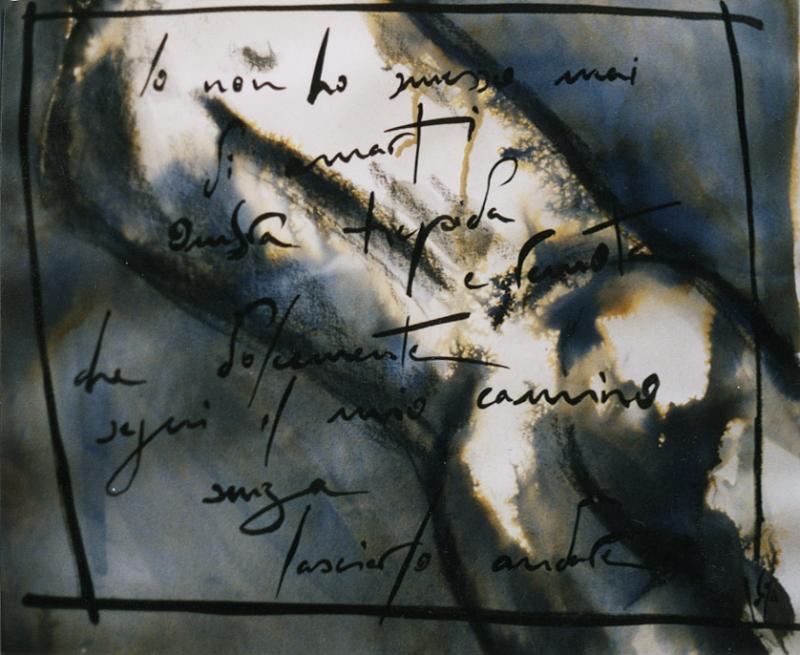 Io non ho smesso mai
di amarti
Ombra
e devota
che dolcemente
segui il mio cammino
senza
lasciarlo andare